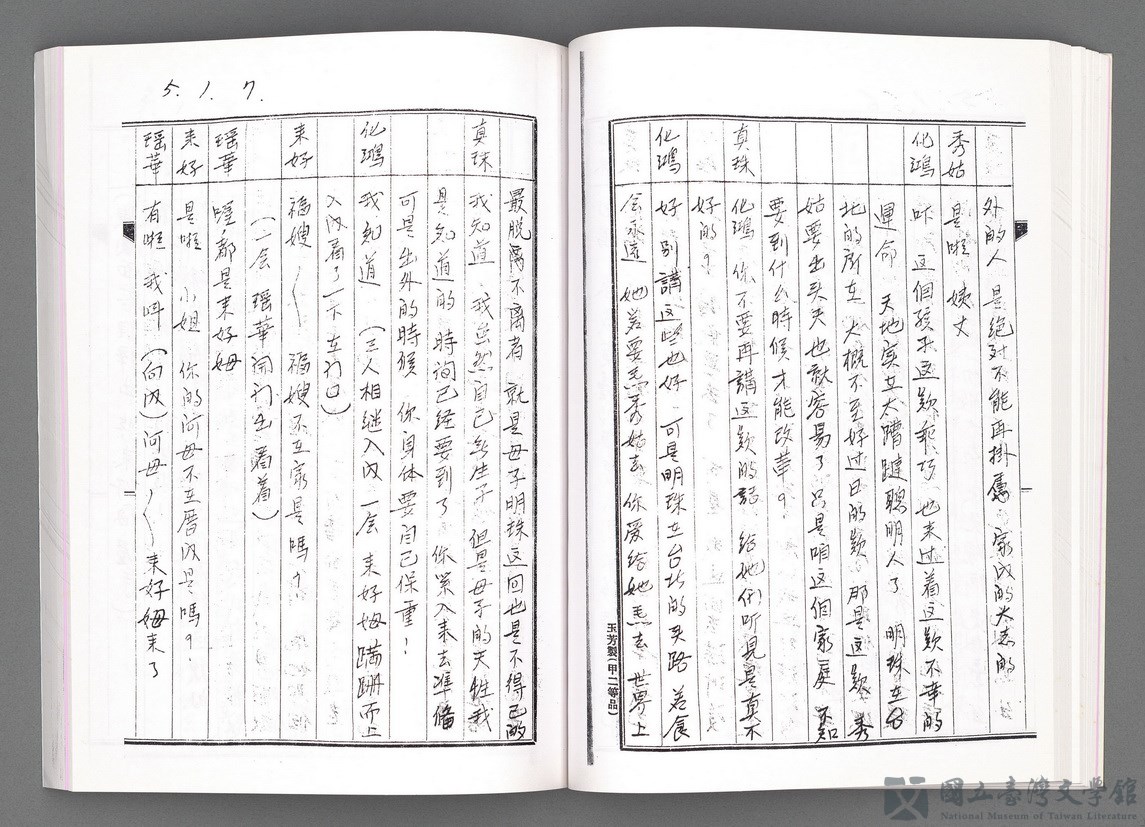 外的人 是絕对不能再掛慮 家内的大志的
秀姑 是啦 姨丈
化鴻 吓 这個孩子这款乖巧 也未过着这款不幸的
運命 天地实在太蹧蹥聰明人了 明珠在台
北的所在 大概不至好过日的款 那是这款 秀
姑要出头夫也就容易了 只是咱这個家庭 不知
要到什么時候才能改革？
真珠 化鴻 你不要再講这款的話 給她們听見是真不
好的？
化鴻 好 別講这些也好 可是明珠在台北的头路 若食
会永遠 她若要焄秀姑去 你爱给她焄去 世界上
玉芳製(甲二等品)
5. 1. 7.
最脫离不离者 就是母子 明珠这回也是不得已的
真珠 我知道 我虽然自己無生子 但是母子的天性我
是知道的 時洵已经要到了 你緊入来去準備
可是出外的時候 你身体要自己保重！
化鴻 我知道 （三人相继入内 一会 来好姆蹒跚而上
入内看了一下 立门口）
来好 福嫂〱 福嫂不在家是嗎？
（一会 瑶華開门出看着）
瑶華 喔 都是来好姆
来好 是啦 小姐 你的阿母不在厝内是嗎？
瑶華 有啦 我叫（向内）阿母〱 来好姆来了
國立臺灣文學館
National Museum of Taiwan Literature